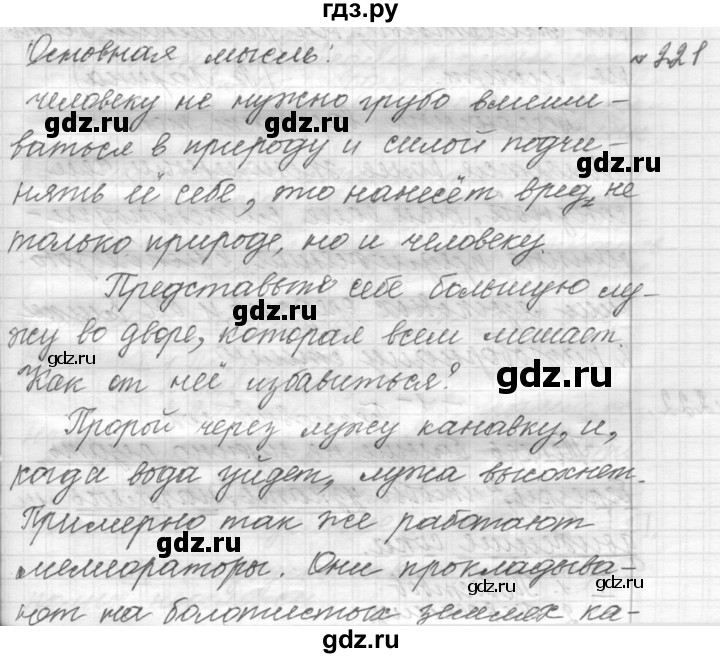 гдз.ру
Основная мысль: № 321
человеку не нужно грубо вмеши-
gdz.ru gdz.ru
ваться в природу и силой подчи-
нять её себе, это нанесёт вред не
только природе, но и человеку.
Представьте себе большую лу-
gdz.ru
жу во дворе, которая всем мешает.
gdz.ru gdz.ru
Как от неё избавиться? gdz.ru
Пророй через лужу канавку, и,
gdz.ru
когда вода уйдет, лужа высохнет.
Примерно так же работают
gdz.ru
мелиораторы. Они прокладыва-
gdz.ru
ют на болотистых землях ка-
gdz.ru
гдз.ру